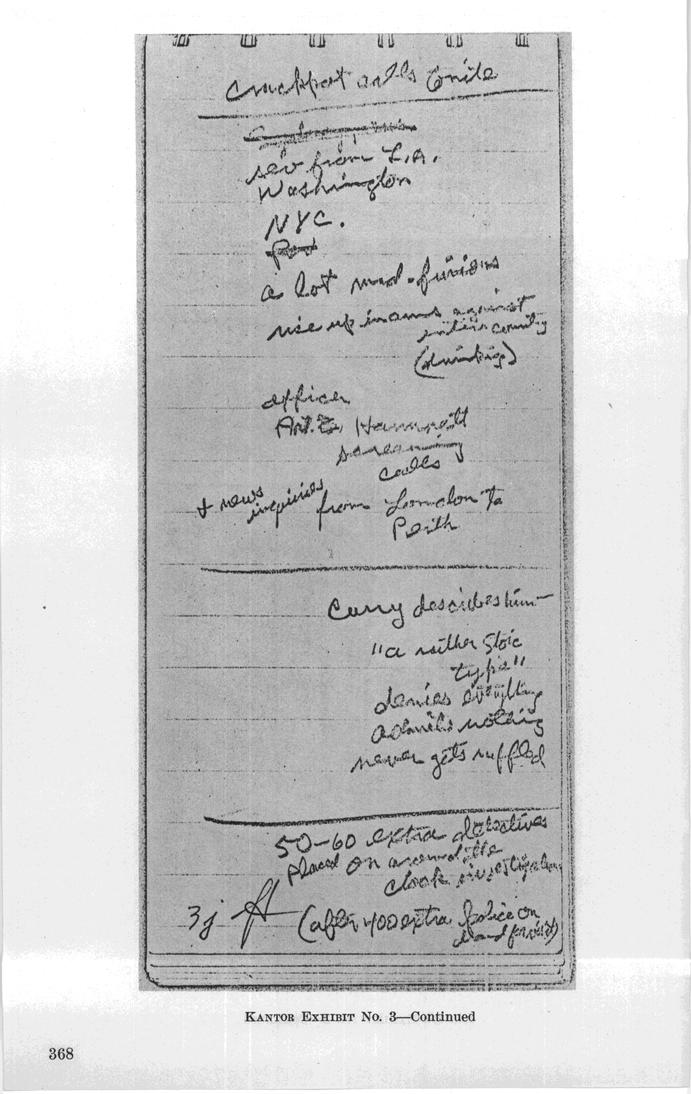 Crackpot calls
sev from L.A.
Washington
NYC.
a lot mad - furious
rise up in arms against
entire county
officer
Art. Hammett
screaming
calls
+ news
inquiries
from London to
Perth
Curry describes him—
"a rather stoic
type"
denies everything
admits nothing
never gets ruffled
50-60 extra detectives
placed on around the
clock investigation
3j
(after 400 extra police on
hand for visit)
KANTOR EXHIBIT NO. 3—Continued
368